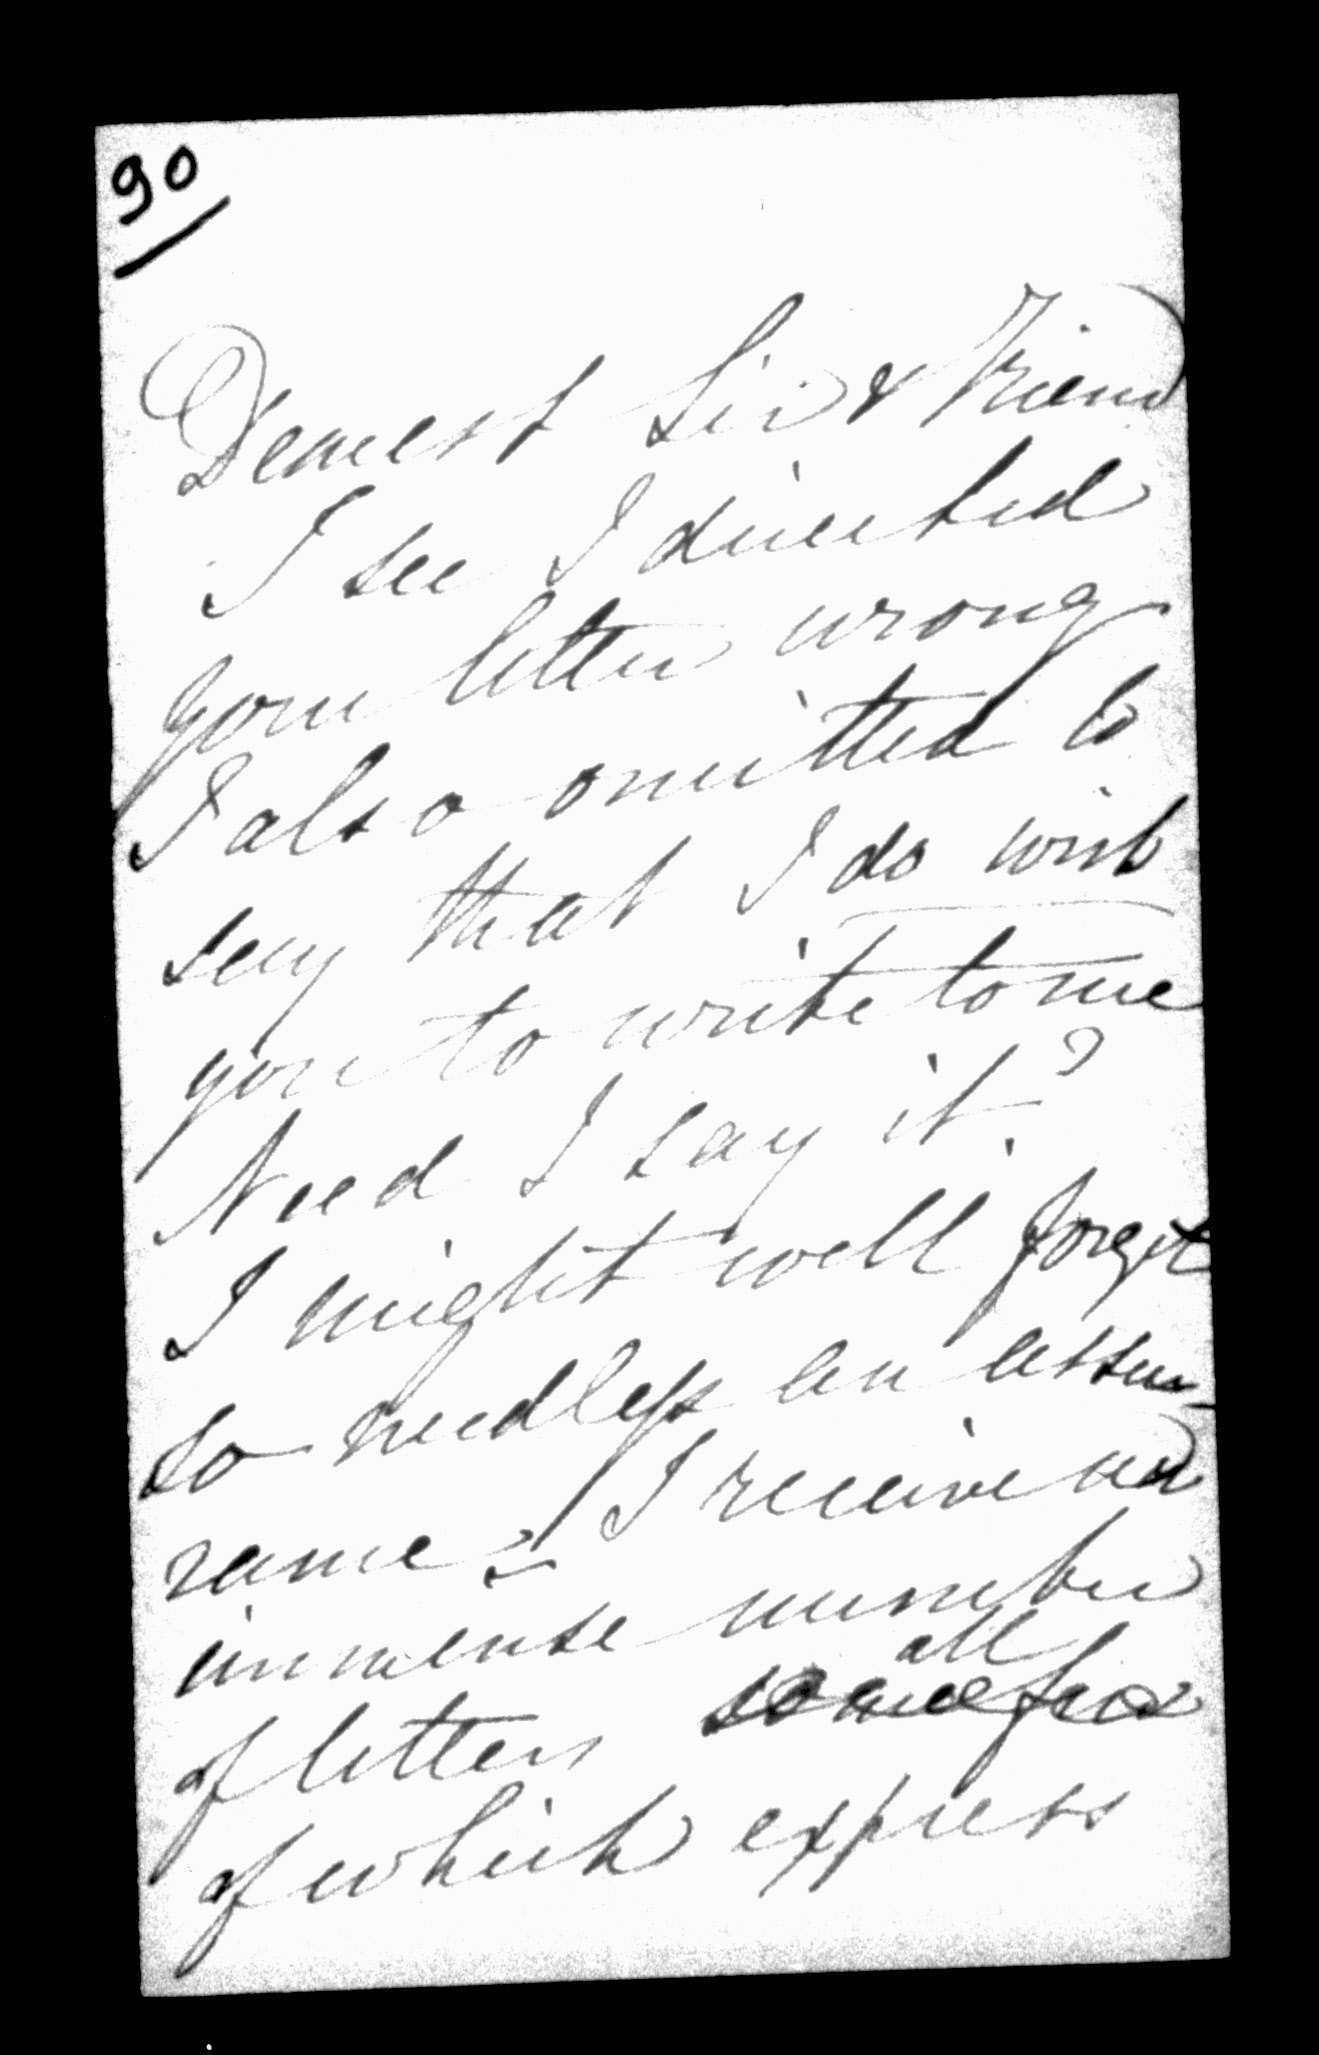 90
Dearest Sir & Friend
I see I directed
your letter wrong
I also omitted to
say that I do wish
you to write to me
Need I say it?
I might well forget
so needless an assu-
rance. I receive an
immense number
of letters all
of which express